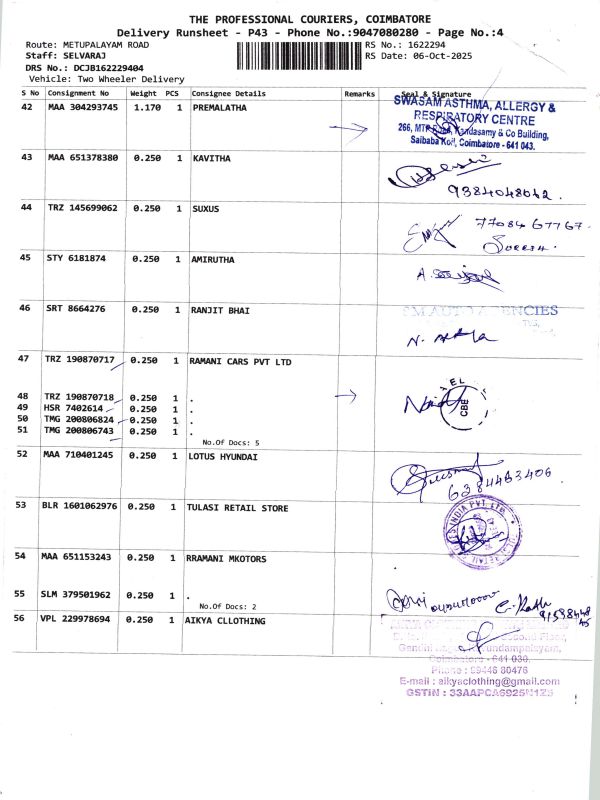 THE PROFESSIONAL COURIERS, COIMBATORE
Delivery Runsheet - P43 - Phone No.:9047080280 - Page No.:4
Route: METUPALAYAM ROAD RS No.: 1622294
Staff: SELVARAJ RS Date: 06-Oct-2025
DRS No.: DCJB162229404
Vehicle: Two Wheeler Delivery
S No Consignment No Weight PCS Consignee Details Remarks Seal & Signature
42 MAA 304293745 1.170 1 PREMALATHA
SWASAM ASTHMA, ALLERGY &
RESPIRATORY CENTRE
266, MTP Road, Kandasamy & Co Building,
Saibaba Koil, Coimbatore - 641 043.
43 MAA 651378380 0.250 1 KAVITHA
9384048042.
44 TRZ 145699062 0.250 1 SUXUS
77084 67767.
Suresh.
45 STY 6181874 0.250 1 AMIRUTHA
46 SRT 8664276 0.250 1 RANJIT BHAI
SM AUTO AGENCIES
47 TRZ 190870717 0.250 1 RAMANI CARS PVT LTD
48 TRZ 190870718 0.250 1 .
49 HSR 7402614 0.250 1 .
50 TMG 200806824 0.250 1 .
51 TMG 200806743 0.250 1 .
CBE
No.Of Docs: 5
52 MAA 710401245 0.250 1 LOTUS HYUNDAI
6384463406.
53 BLR 1601062976 0.250 1 TULASI RETAIL STORE
INDIA PVT LTD.
54 MAA 651153243 0.250 1 RRAMANI MKOTORS
55 SLM 379501962 0.250 1 .
No.Of Docs: 2
56 VPL 229978694 0.250 1 AIKYA CLLOTHING
Second Floor,
Coimbatore - 641 030.
Phone : 89446 80476
E-mail : aikyaclothing@gmail.com
GSTIN : 33AAPCA6925N1Z5